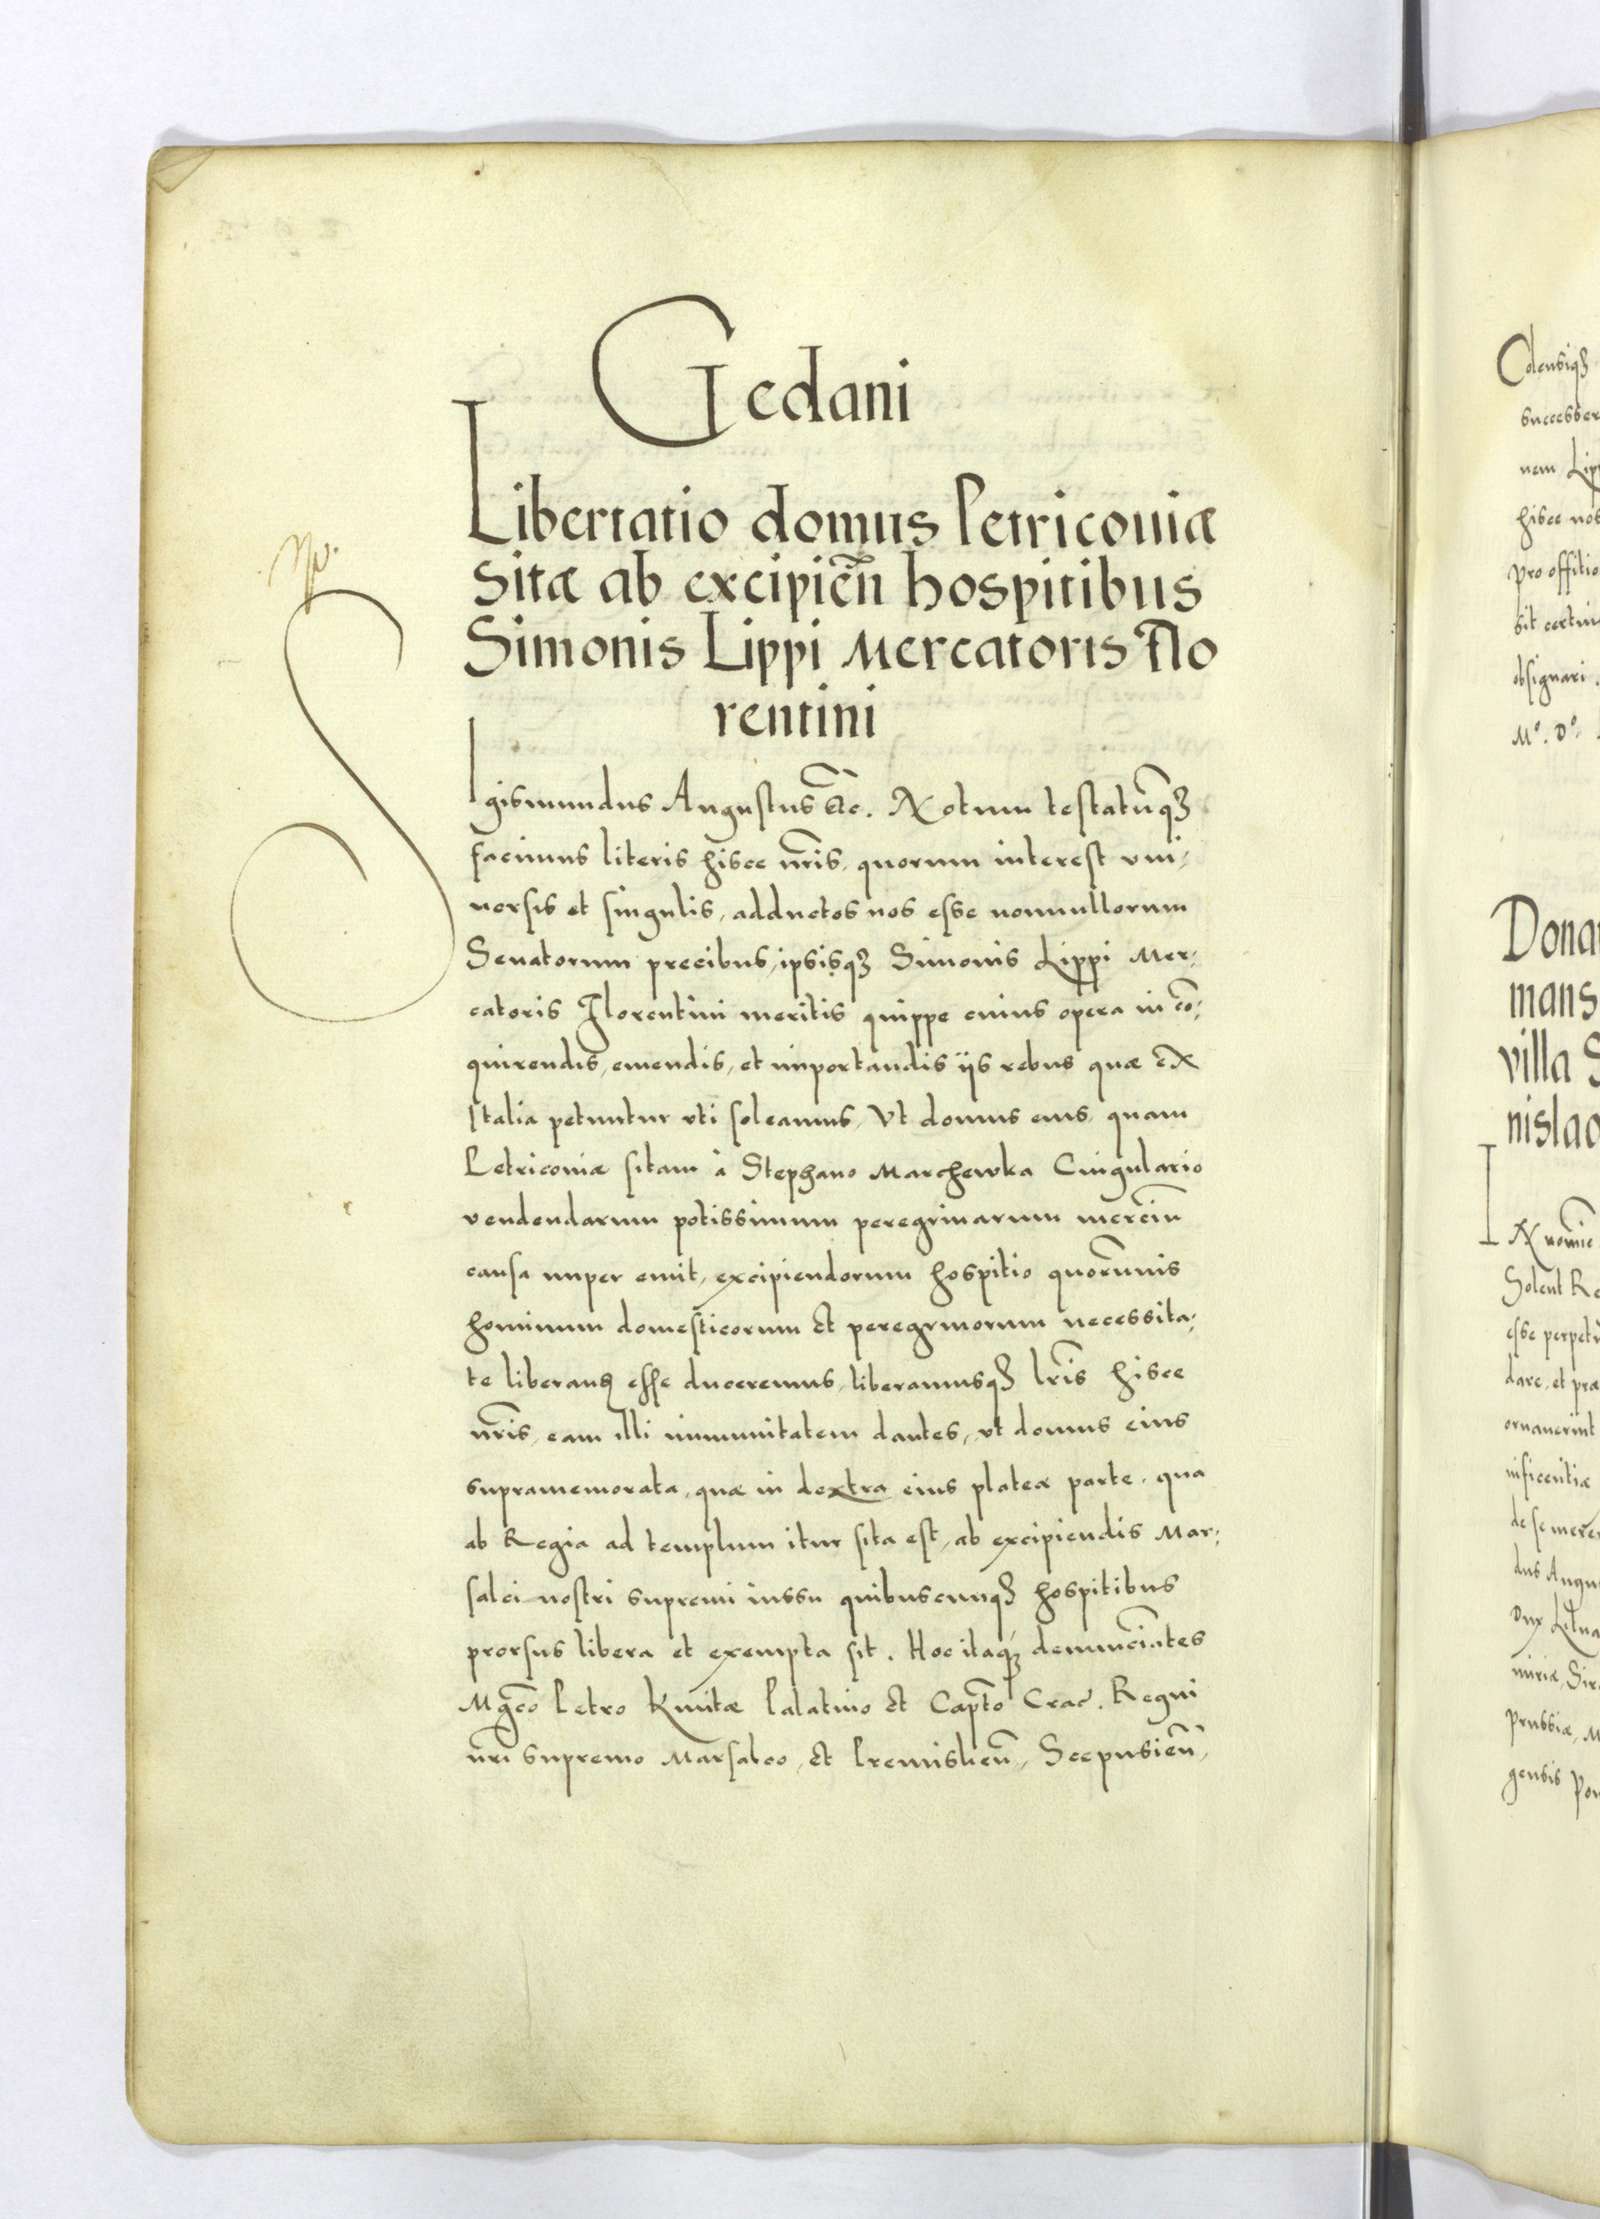 Gedani
Libertatio domus Petricouiæ
Sitæ ab excipien̄ hospitibus
Simonis Lippi Mercatoris Flo
rentini
Sigismundus Augustus etc. Notum testatūq3
facimus literis hisce nr̄is, quorum interest vni,
uersis et singulis, adductos nos esse nonnullorum
Senatorum precibus, ipsisq3 Simonis Lippi Mer,
catoris Florentini meritis quippe cuius opera in co,
quirendis, emendis, et importandis ijs rebus quæ ex
Italia petuntur vti soleamus, Vt domus eius, quam
Petricouiæ sitam à Stephano Marchewka Cingulario
vendendarum potissimum peregrinarum mercīū
causa nuper emit, excipiendorum hospitio quorūuis
hominum domesticorum et peregrinorum necessita,
te liberand̄ esse duceremus, liberamusq3 lr̄is hisce
nr̄is, eam illi immunitatem dantes, vt domus eius
supramemorata, quæ in dextra eius plateæ parte, qua
ab Regia ad templum itur sita est, ab excipiendis Mar,
salci nostri supremi iussu quibuscunq3 hospitibus
prorsus libera et exempta sit. Hoc itaq3 denunciātes
Mgc̄o Petro Kmitæ Palatino et Capt̄o Crac̄. Regni
nr̄i supremo Marsalco, et Premislieñ, Scepusieñ,
Colensiq3
successer
nem Lipp
hisce nos
pro offitio
sit certiu
obsignari.
Mo. Do.
Dona
mans
villa S
nislao
IN nomīe
Solent Re
esse perpetu
dare, et præ
ornauerint
nificentiæ
de se meren
dus Augu
Dux Litua
uiriæ, Sir
Prussiæ, M
gensis Pon